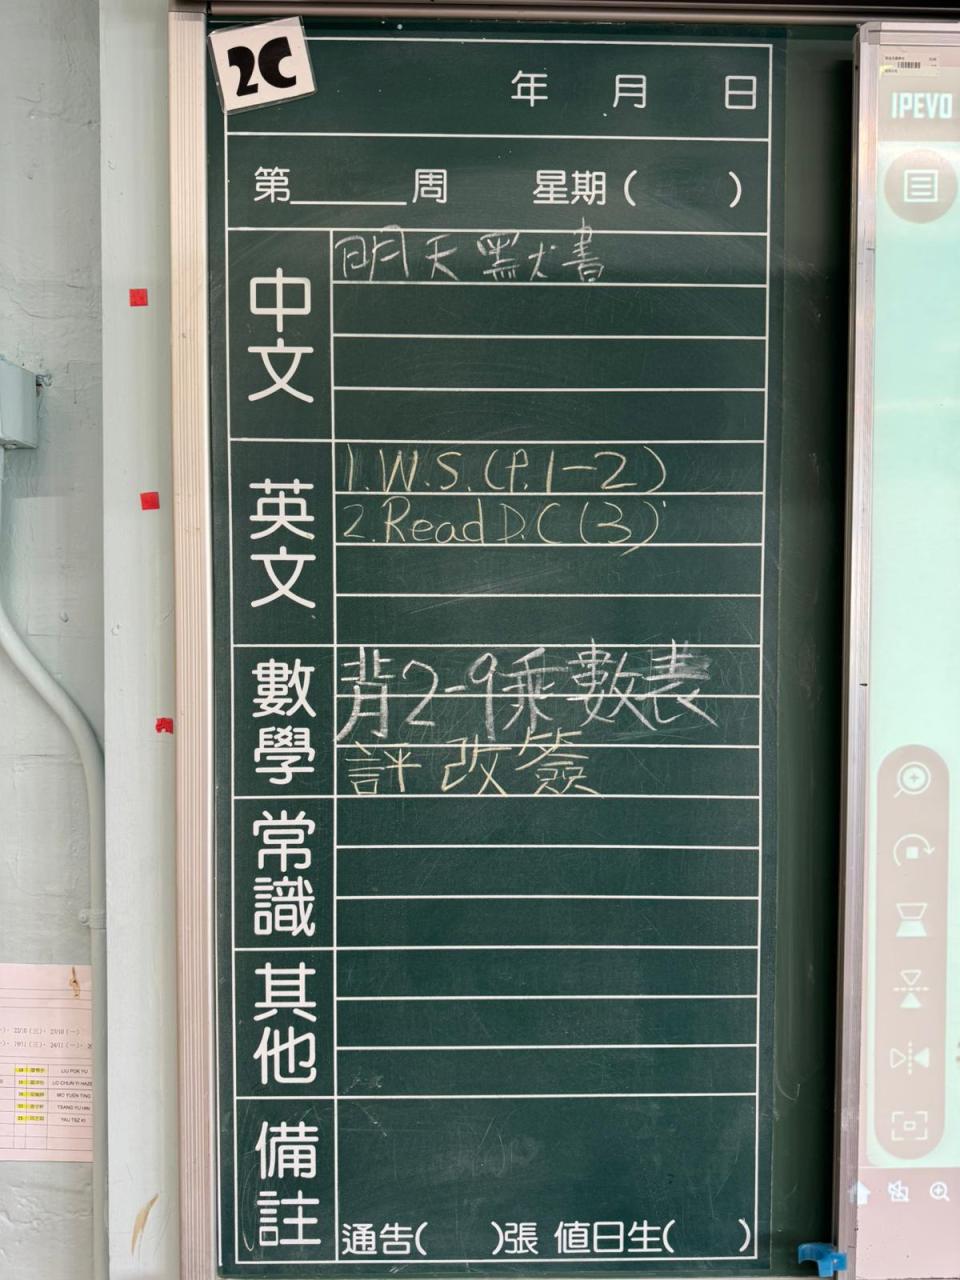 2C
年 月 日
第______周 星期( )
中文
明天默書
英文
1.W.S.(P.1-2)
2.Read D.C(3)
數學
背2-9乘數表
評改簽
常識
其他
備註
通告( )張 值日生( )
IPEVO
LIU POK YU
LO CHUN YI HAZE
MO YUEN TING
TSANG YU HIN
YAU TSZ KI